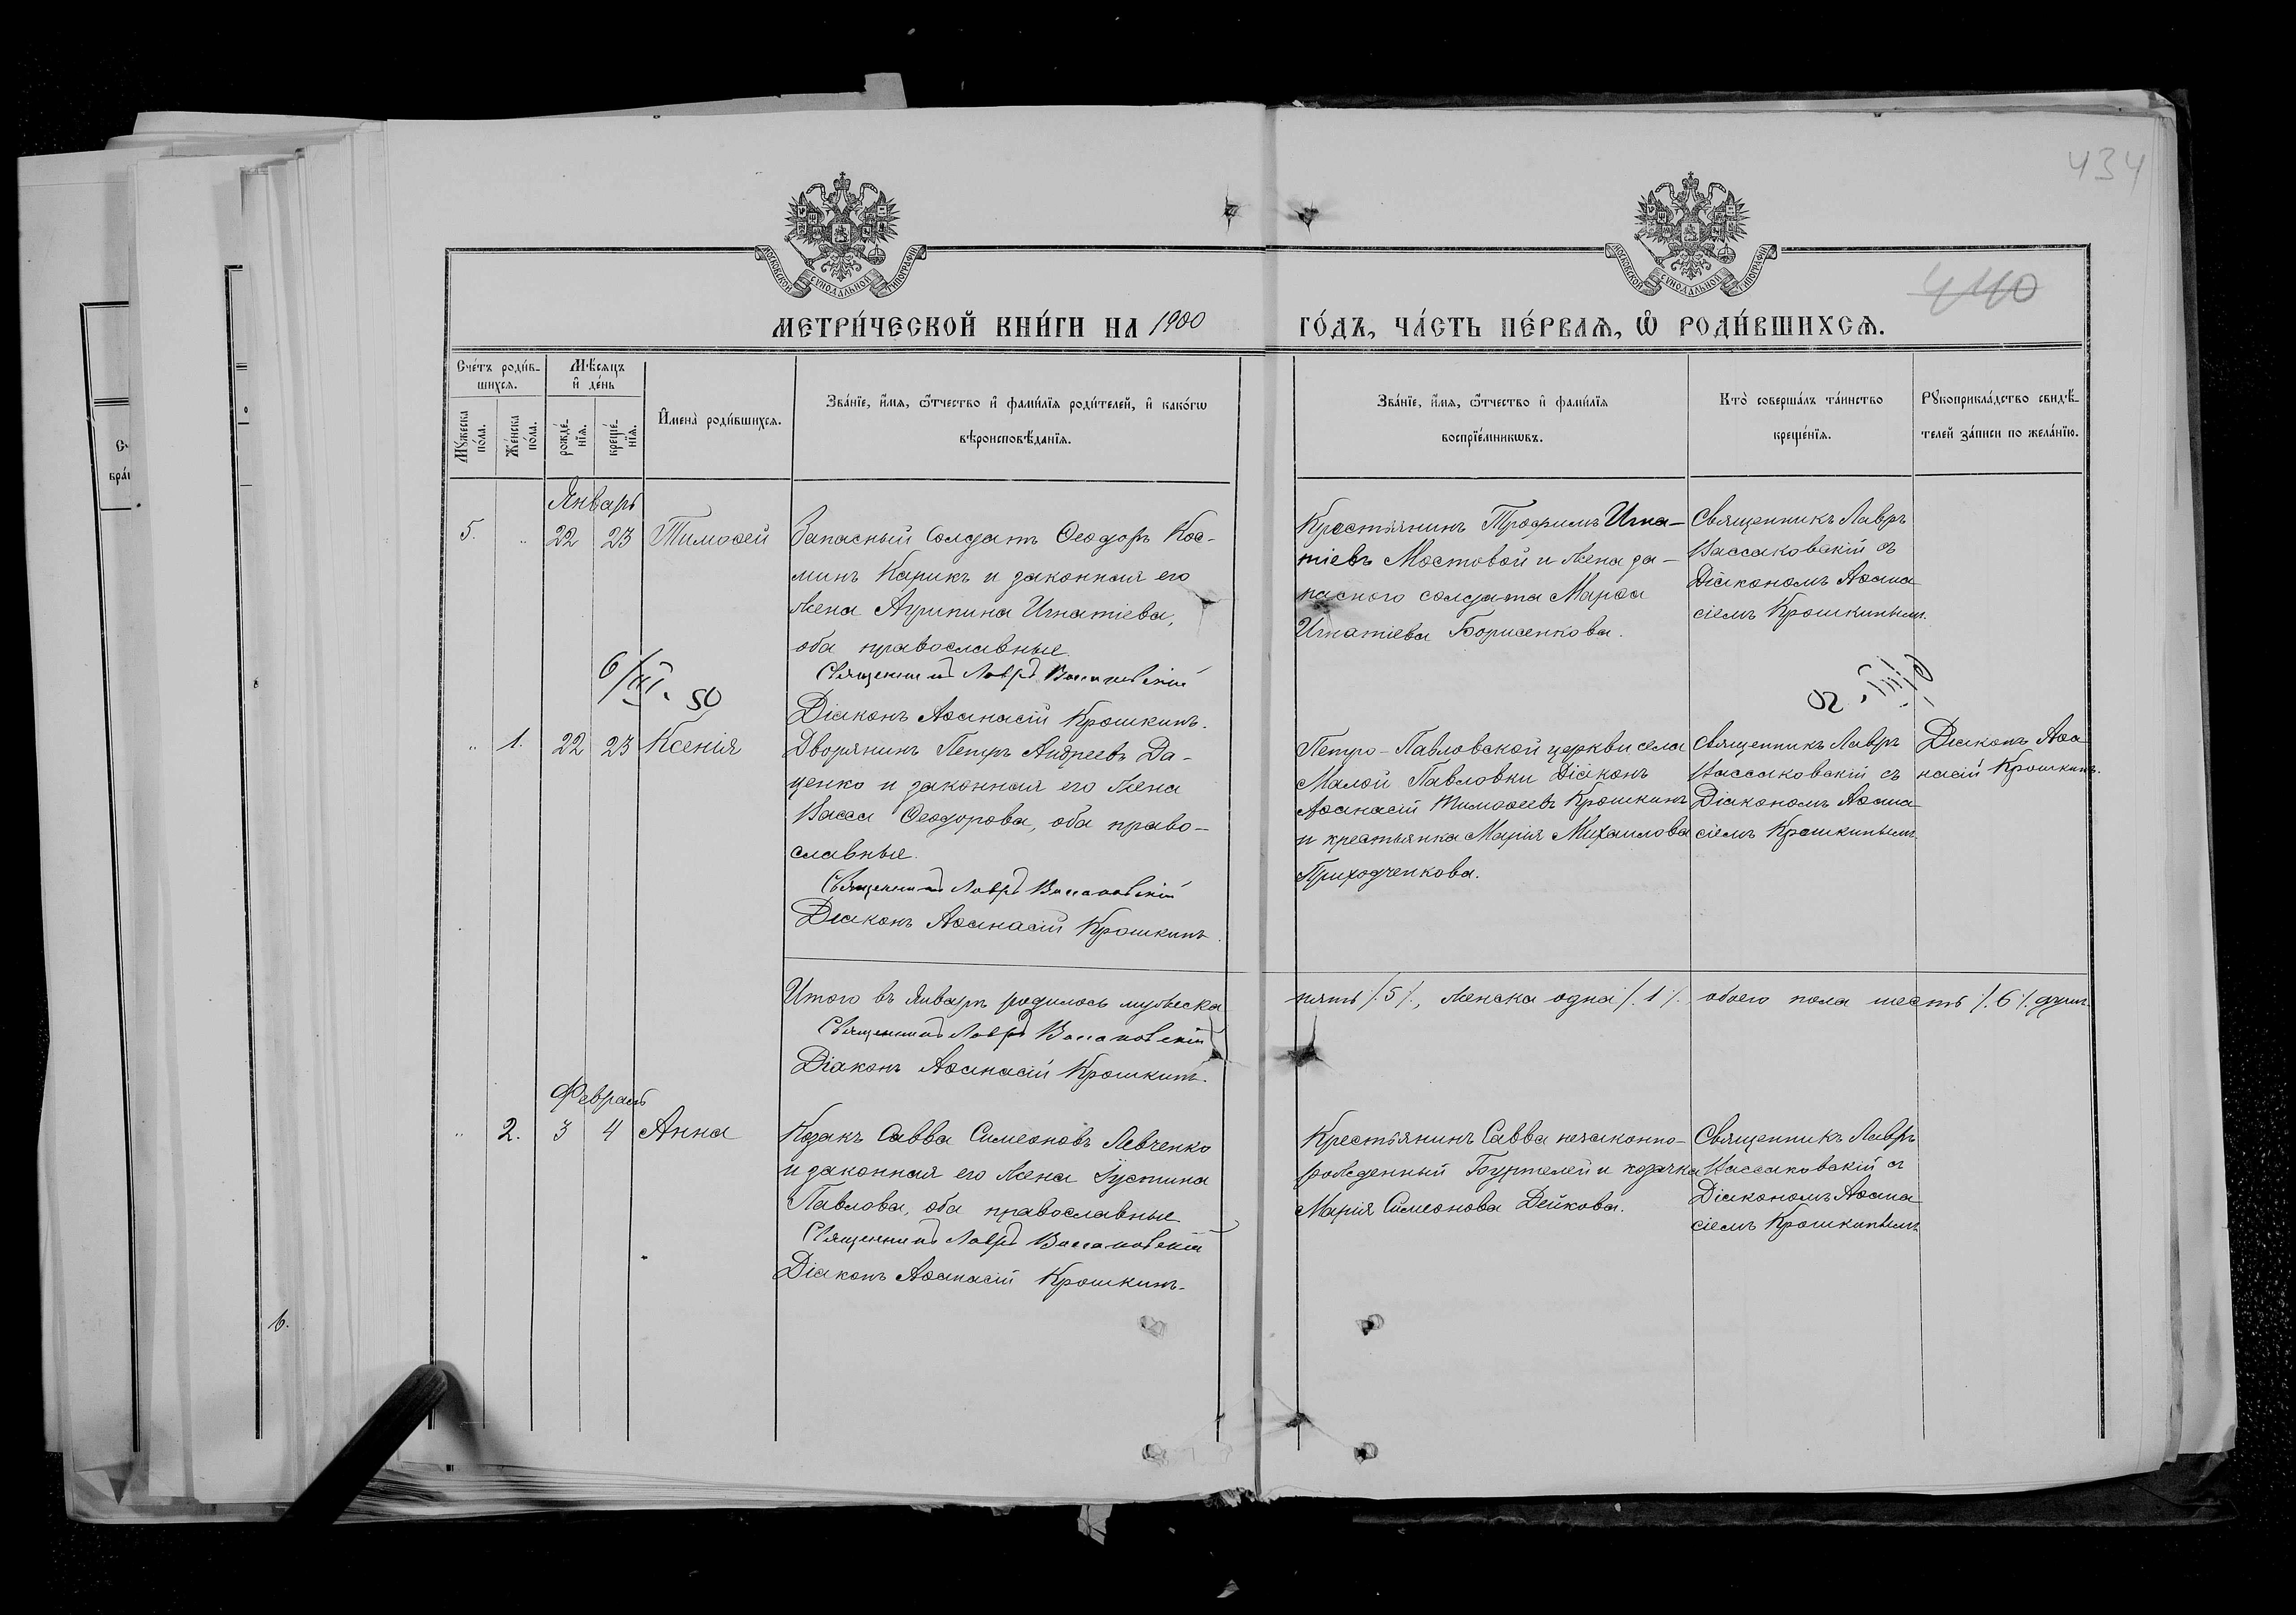 434
440
МОСКОВСКОЙ СѴНОДАЛЬНОЙ ТИПОГРАФІИ
МОСКОВСКОЙ СѴНОДАЛЬНОЙ ТИПОГРАФІИ
МЕТРИ́ЧЕСКОЙ КНИ́ГИ НА 1900 ГО́ДЪ, ЧА́СТЬ ПЕ́РВАѦ, Ѡ РОДИ́ВШИХСѦ.
Сче́тъ роди́в-
шихсѧ.
Мѣ́сѧцъ
и де́нь
Мꙋжеска по́ла.
Же́нска по́ла.
рожде́-
нїѧ.
креще́-
нїѧ.
Имена̀ роди́вшихсѧ.
Зва́нїе, и́мѧ, ѻ҆́тчество и фами́лїѧ роди́телей, и како́гѡ
вѣроисповѣ́данїѧ.
Зва́нїе, и́мѧ, ѻ҆́тчество и фами́лїѧ
воспрїе́мникѡвъ.
Кто̀ соверша́лъ та́инство
креще́нїѧ.
Рꙋкоприкла́дство свидѣ́-
телей за́писи по жела́нїю.
Январь
5. „ 22 23 Тимоѳей
Запасный солдатъ Ѳеодоръ Кос-
минъ Карикъ и законная его
жена Агрипина Игнатіева,
оба православные.
Священникъ Лавръ Вассаковскій
Діаконъ Аѳанасій Крошкинъ.
Крестьянинъ Трофимъ Игна-
тіевъ Мостовой и жена за-
паснаго солдата Марѳа
Игнатіева Борисенкова.
Священникъ Лавръ
Вассаковскій съ
Діакономъ Аѳана
сіемъ Крошкинымъ.
6/III. 50
6/III. 50
„ 1. 22 23 Ксенія
Дворянинъ Петръ Андреевъ Да-
ценко и законная его жена
Васса Ѳеодорова, оба право-
славные.
Священникъ Лавръ Вассаковскій
Діаконъ Аѳанасій Крошкинъ.
Петро-Павловской церкви села
Малой Павловки Діаконъ
Аѳанасій Тимоѳеевъ Крошкинъ
и крестьянка Марія Михаилова
Приходченкова.
Священникъ Лавръ
Вассаковскій съ
Діакономъ Аѳана
сіемъ Крошкинымъ.
Діаконъ Аѳа
насій Крошкинъ.
Итого въ Январѣ родилось мужеска пять /.5/., женска одна /.1/. обоего пола шесть /.6/. душъ.
Священникъ Лавръ Вассаковскій
Діаконъ Аѳанасій Крошкинъ.
Февраль
„ 2. 3 4 Анна
Козакъ Савва Симеоновъ Левченко
и законная его жена Іустина
Павлова, оба православные
Священникъ Лавръ Вассаковскій
Діаконъ Аѳанасій Крошкинъ.
Крестьянинъ Савва незаконно-
рожденный Буртелей и козачка
Марія Симеонова Дейкова.
Священникъ Лавръ
Вассаковскій съ
Діакономъ Аѳана
сіемъ Крошкинымъ